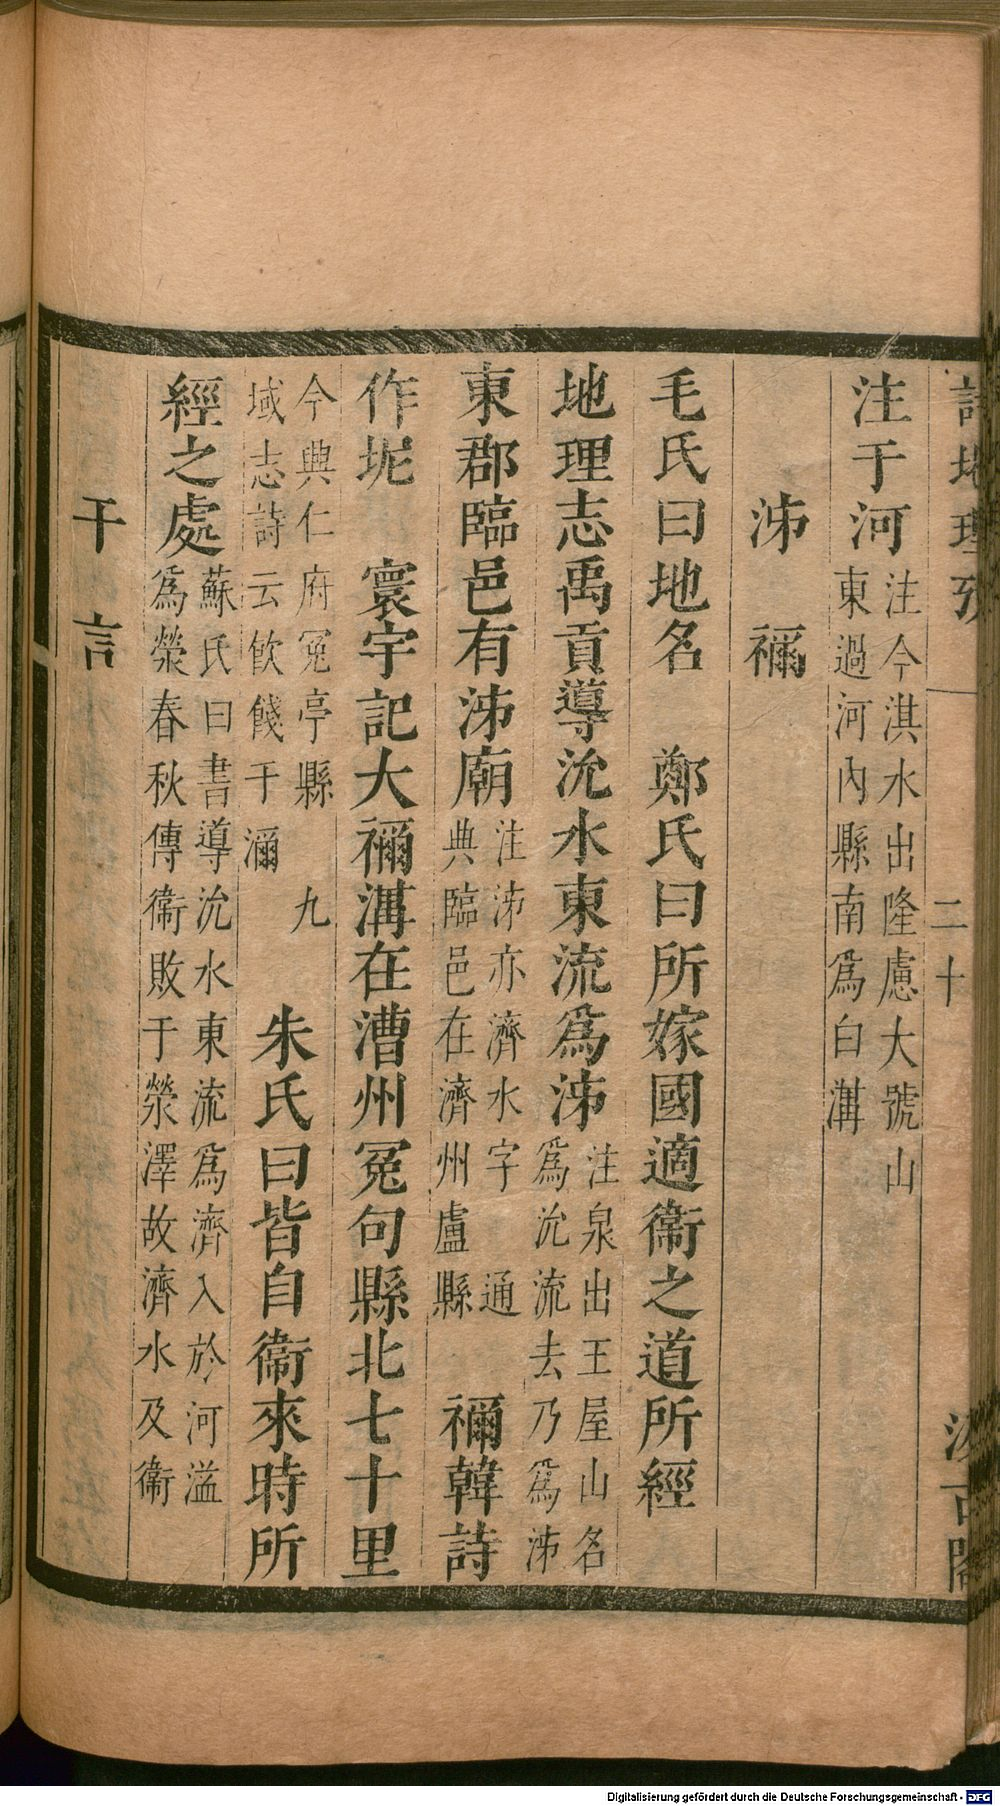 詩地理攷 二十 汲古閣
注于河
注今淇水出隆慮大號山
東過河內縣南爲白溝
泲 禰
毛氏曰地名 鄭氏曰所嫁國適衞之道所經
地理志禹貢導沇水東流爲泲
注泉出王屋山名
爲沇流去乃爲泲
東郡臨邑有泲廟
注泲亦濟水字 通
典臨邑在濟州盧縣
禰韓詩
作坭 寰宇記大禰溝在漕州冤句縣北七十里
今興仁府冤亭縣 九
域志詩云飮餞于濔
朱氏曰皆自衞來時所
經之處
蘇氏曰書導沇水東流爲濟入於河溢
爲滎春秋傳衞敗于滎澤故濟水及衞
干 言
Digitalisierung gefördert durch die Deutsche Forschungsgemeinschaft - DFG